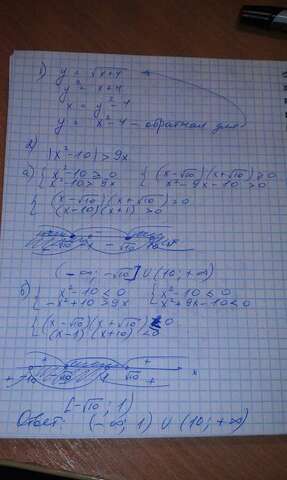 1) y = √x+4
y² = x+4
x = y² - 4
y = x² - 4 - обратная для
2)
|x² - 10| > 9x
а) { x² - 10 ≥ 0 { (x - √10)(x + √10) ≥ 0
x² - 10 > 9x x² - 9x - 10 > 0
{ (x - √10)(x + √10) ≥ 0
(x - 10)(x + 1) > 0
(-∞; -√10] ∪ (10; +∞)
б) { x² - 10 < 0 { x² - 10 ≤ 0
-x² + 10 > 9x x² + 9x - 10 < 0
{ (x - √10)(x + √10) ≤ 0
(x - 1)(x + 10) < 0
+ + x
-10 -√10 1 √10 +
[-√10; 1)
Ответ: (-∞; 1) ∪ (10; +∞)